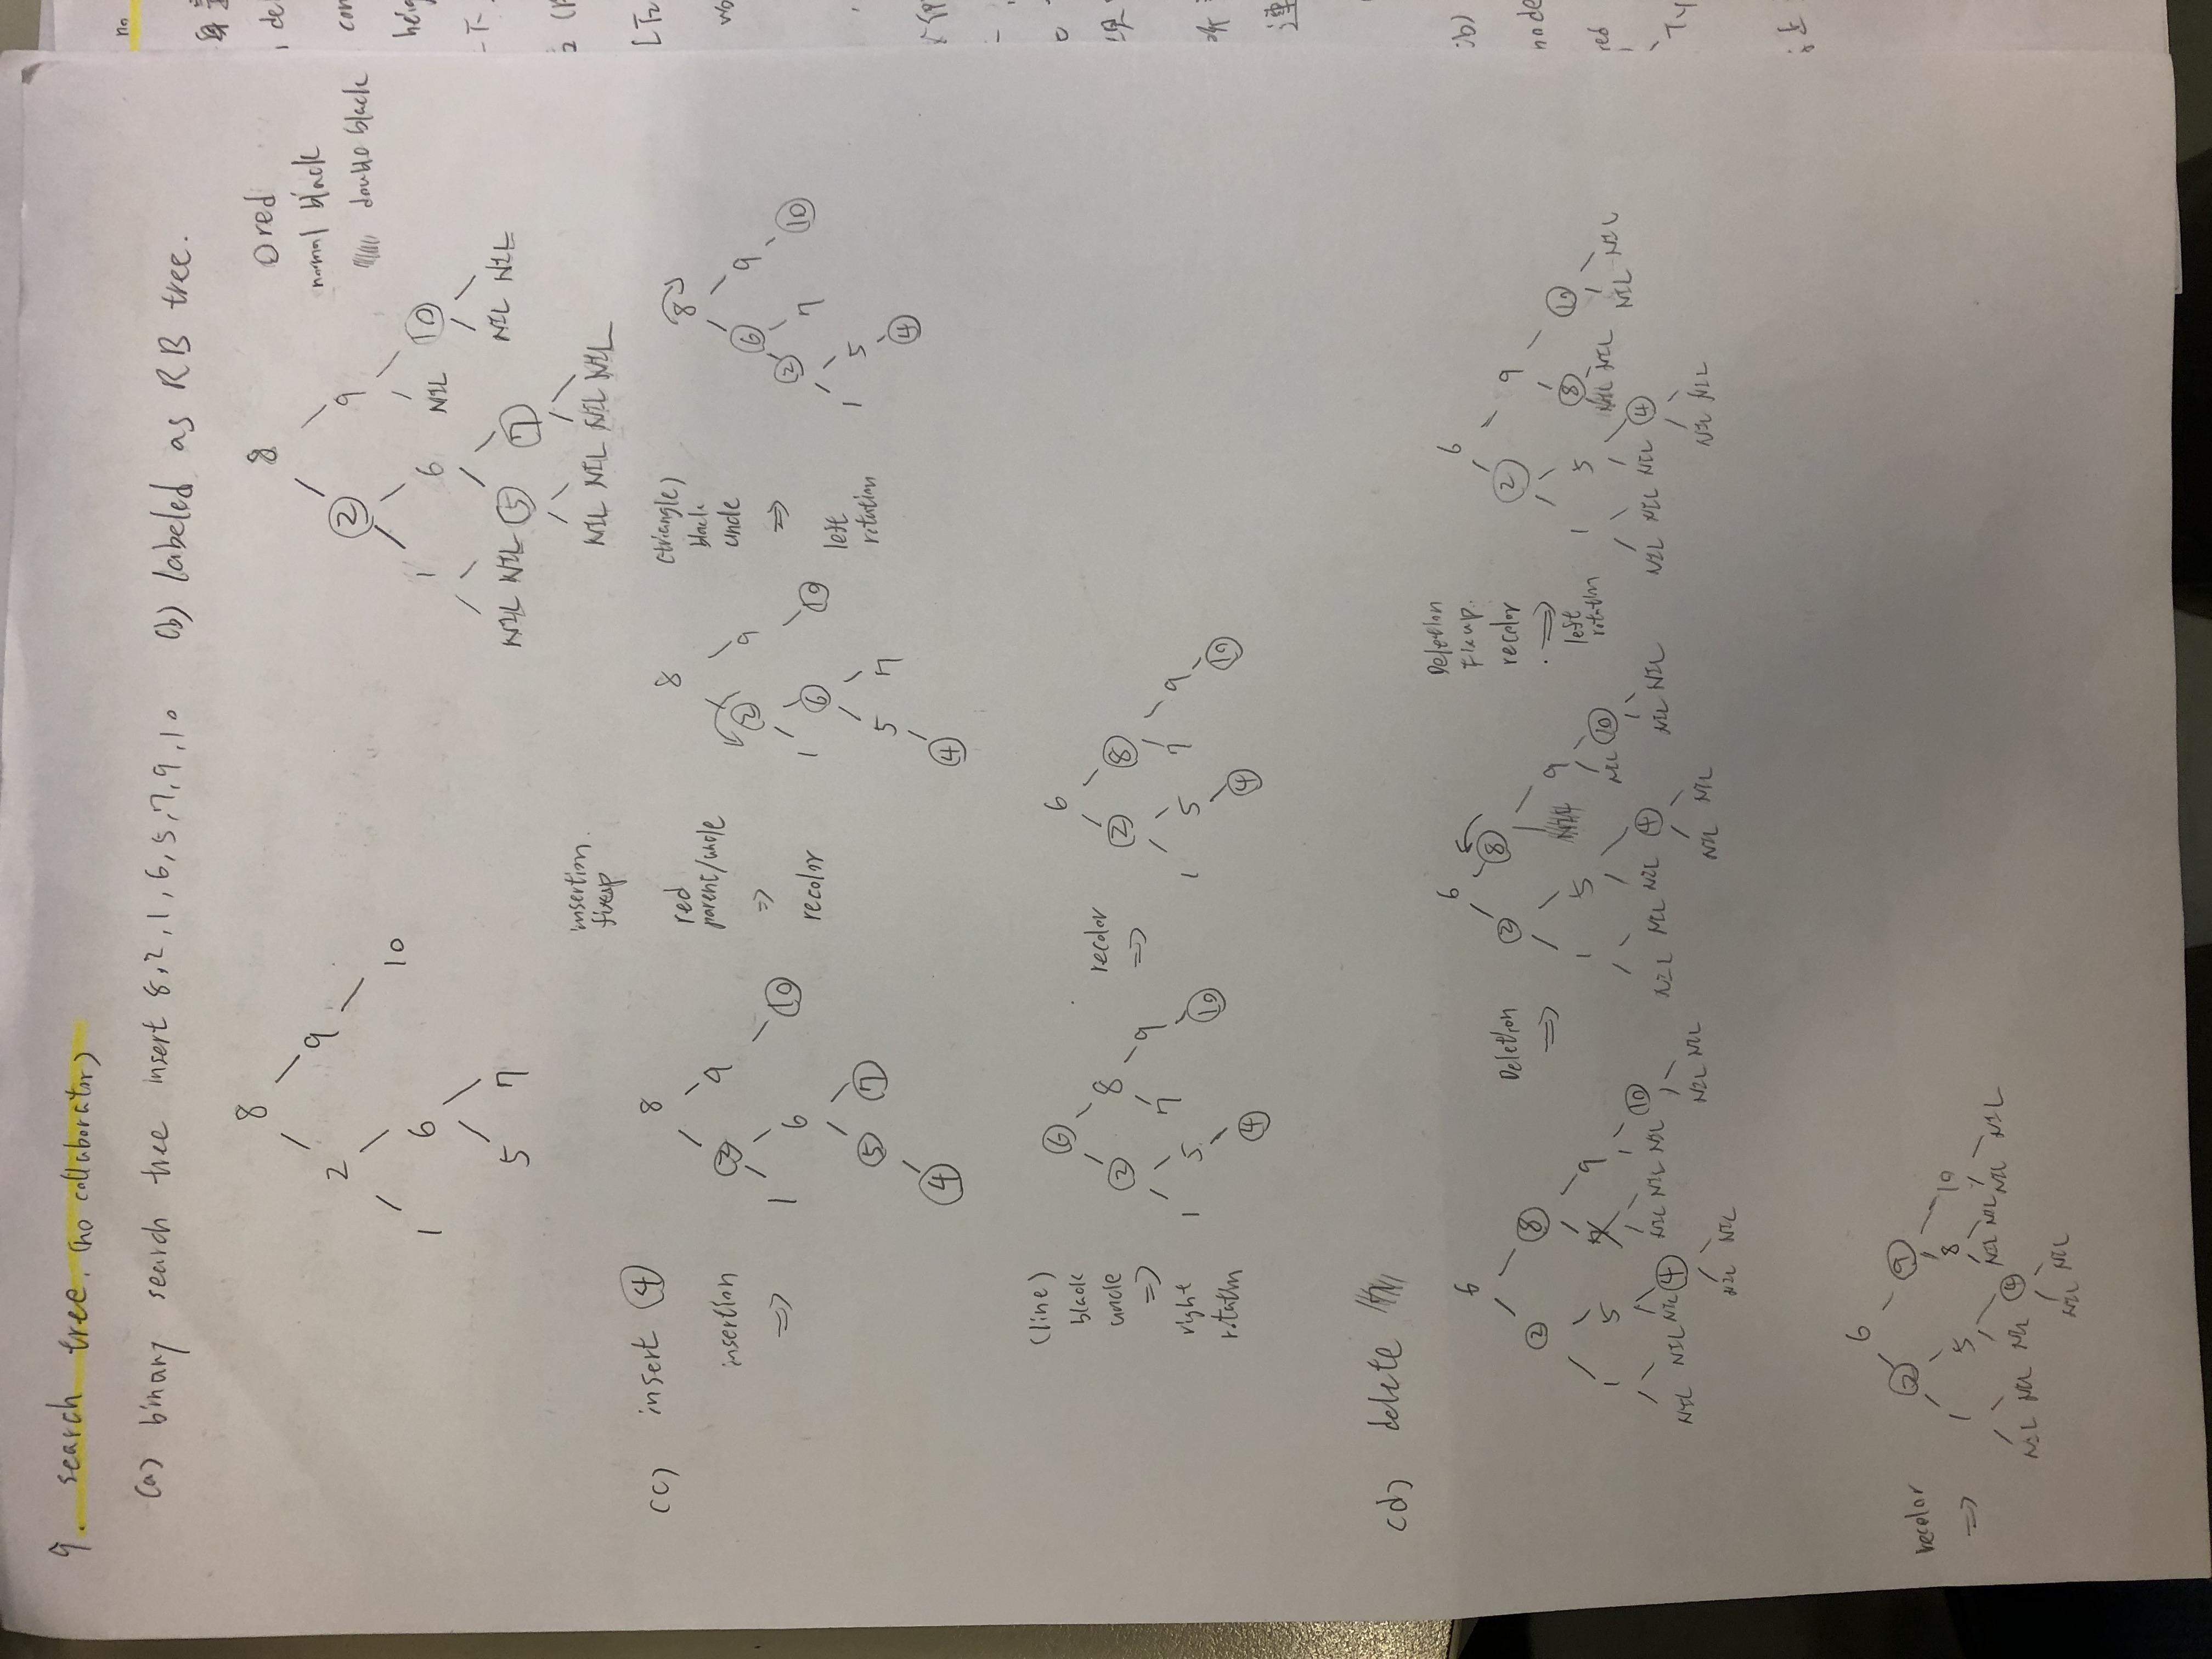 9. search tree. (no collaborator)
(a) binary search tree insert 8,2,1,6,5,7,9,10
8
2 9
1 6 10
5 7
(b) labeled as RB tree.
O red
normal black
double black
8
2 9
1 6 NIL 10
NIL NIL 5 7 NIL NIL
NIL NIL NIL NIL
(c) insert 4
insertion
⇒
8
2 9
1 6 10
5 7
4
insertion
fixup
red
parent/uncle
⇒
recolor
8
2 9
1 6 10
5 7
4
(triangle)
black
uncle
⇒
left
rotation
8
6 9
2 7 10
1 5
4
(line)
black
uncle
⇒
right
rotation
6
2 8
1 5 7 9
4 10
recolor
⇒
6
2 8
1 5 7 9
4 10
(d) delete
6
2 8
1 5 7 9
NIL NIL NIL 4 NIL NIL NIL 10
NIL NIL NIL NIL
Deletion
⇒
6
2 8
1 5 9
NIL NIL NIL 4 NIL 10
NIL NIL NIL NIL
Deletion
fixup.
recolor
⇒
left
rotation
6
2 9
1 5 8 10
NIL NIL NIL 4 NIL NIL NIL NIL
NIL NIL
recolor
⇒
6
2 9
1 5 8 10
NIL NIL NIL 4 NIL NIL NIL NIL
NIL NIL
no
del
con
heig
wo
node
red